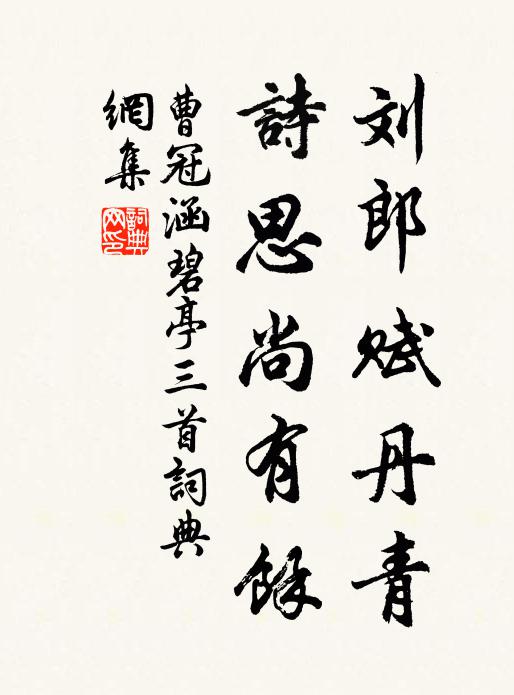 刘郎赋丹青
詩思尚有餘
曹冠涵碧亭三首詞典
網集
詞典网印